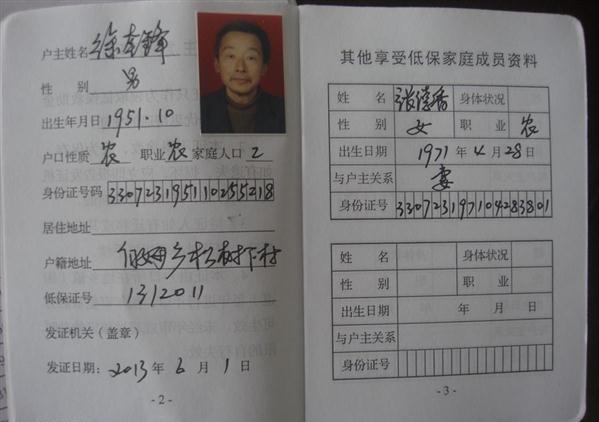 户主姓名 徐
性 别 男
出生年月日 1951.10
户口性质 农 职业 农 家庭人口 2
身份证号码 330723195110255218
居住地址
户籍地址 乡松树下村
低保证号 1312011
发证机关（盖章）
发证日期： 2013 年 6 月 1 日
- 2 -
其他享受低保家庭成员资料
姓 名 张 香 身体状况
性 别 女 职 业 农
出生日期 1971 年 4 月 28 日
与户主关系 妻
身份证号 330723197104283801
姓 名 身体状况
性 别 职 业
出生日期 年 月 日
与户主关系
身份证号
- 3 -